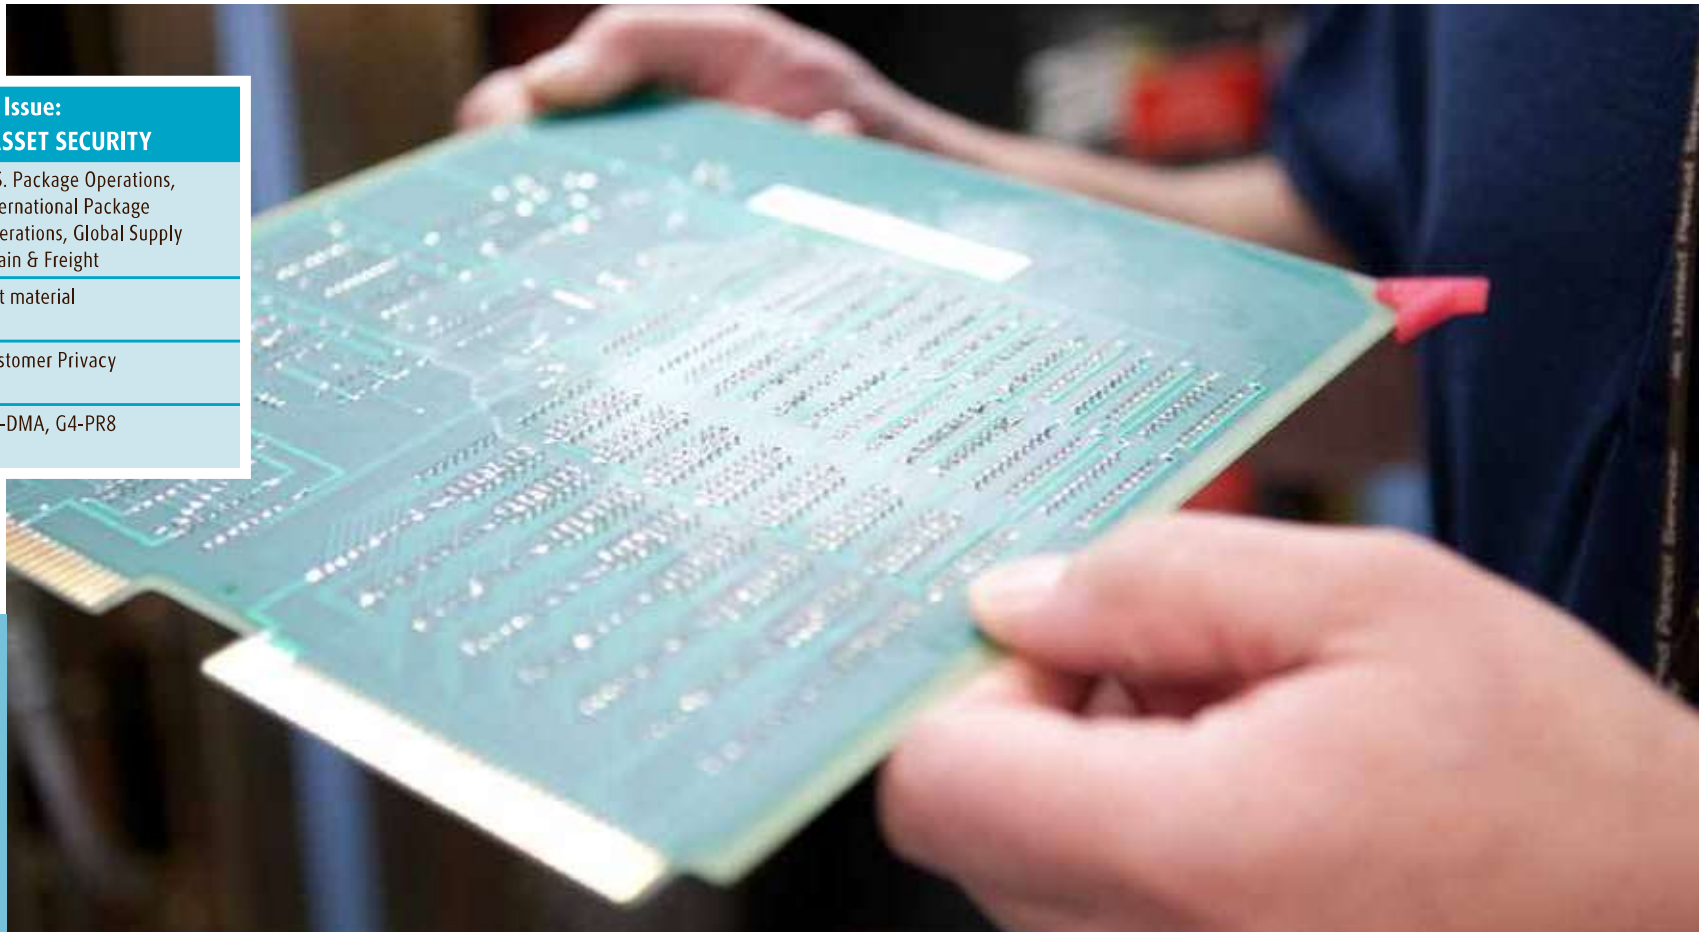 Issue:
SSET SECURITY
S. Package Operations,
ternational Package
erations, Global Supply
ain & Freight
t material
stomer Privacy
-DMA, G4-PR8